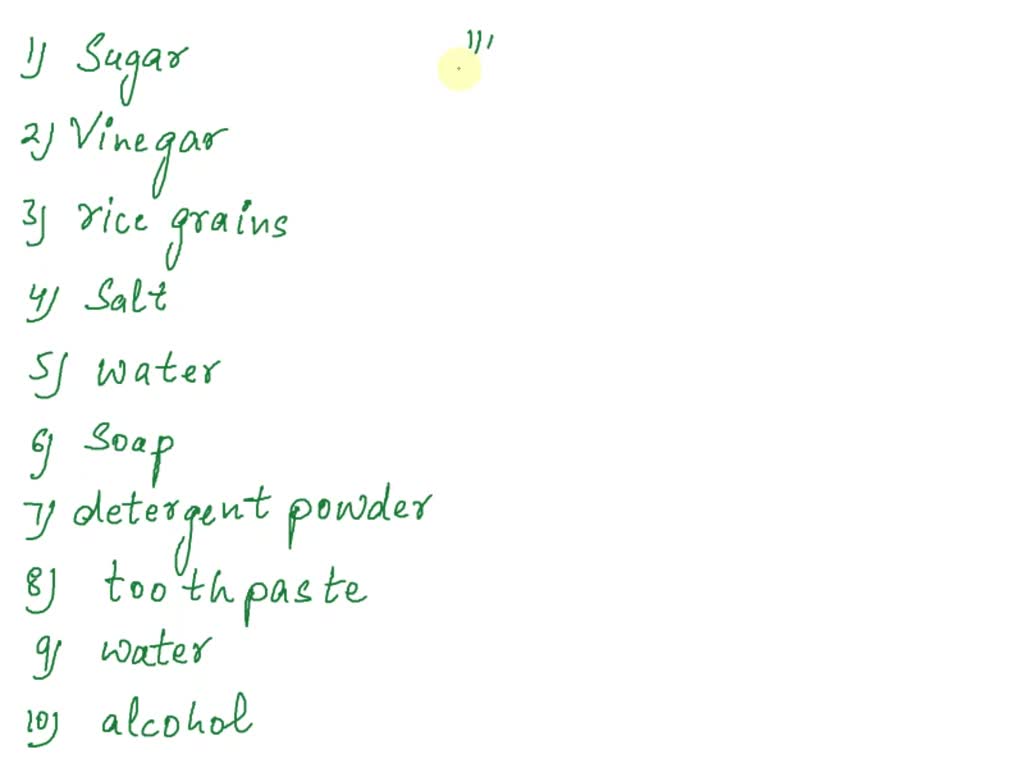 1) Sugar
2) Vinegar
3) rice grains
4) Salt
5) water
6) Soap
7) detergent powder
8) tooth paste
9) water
10) alcohol